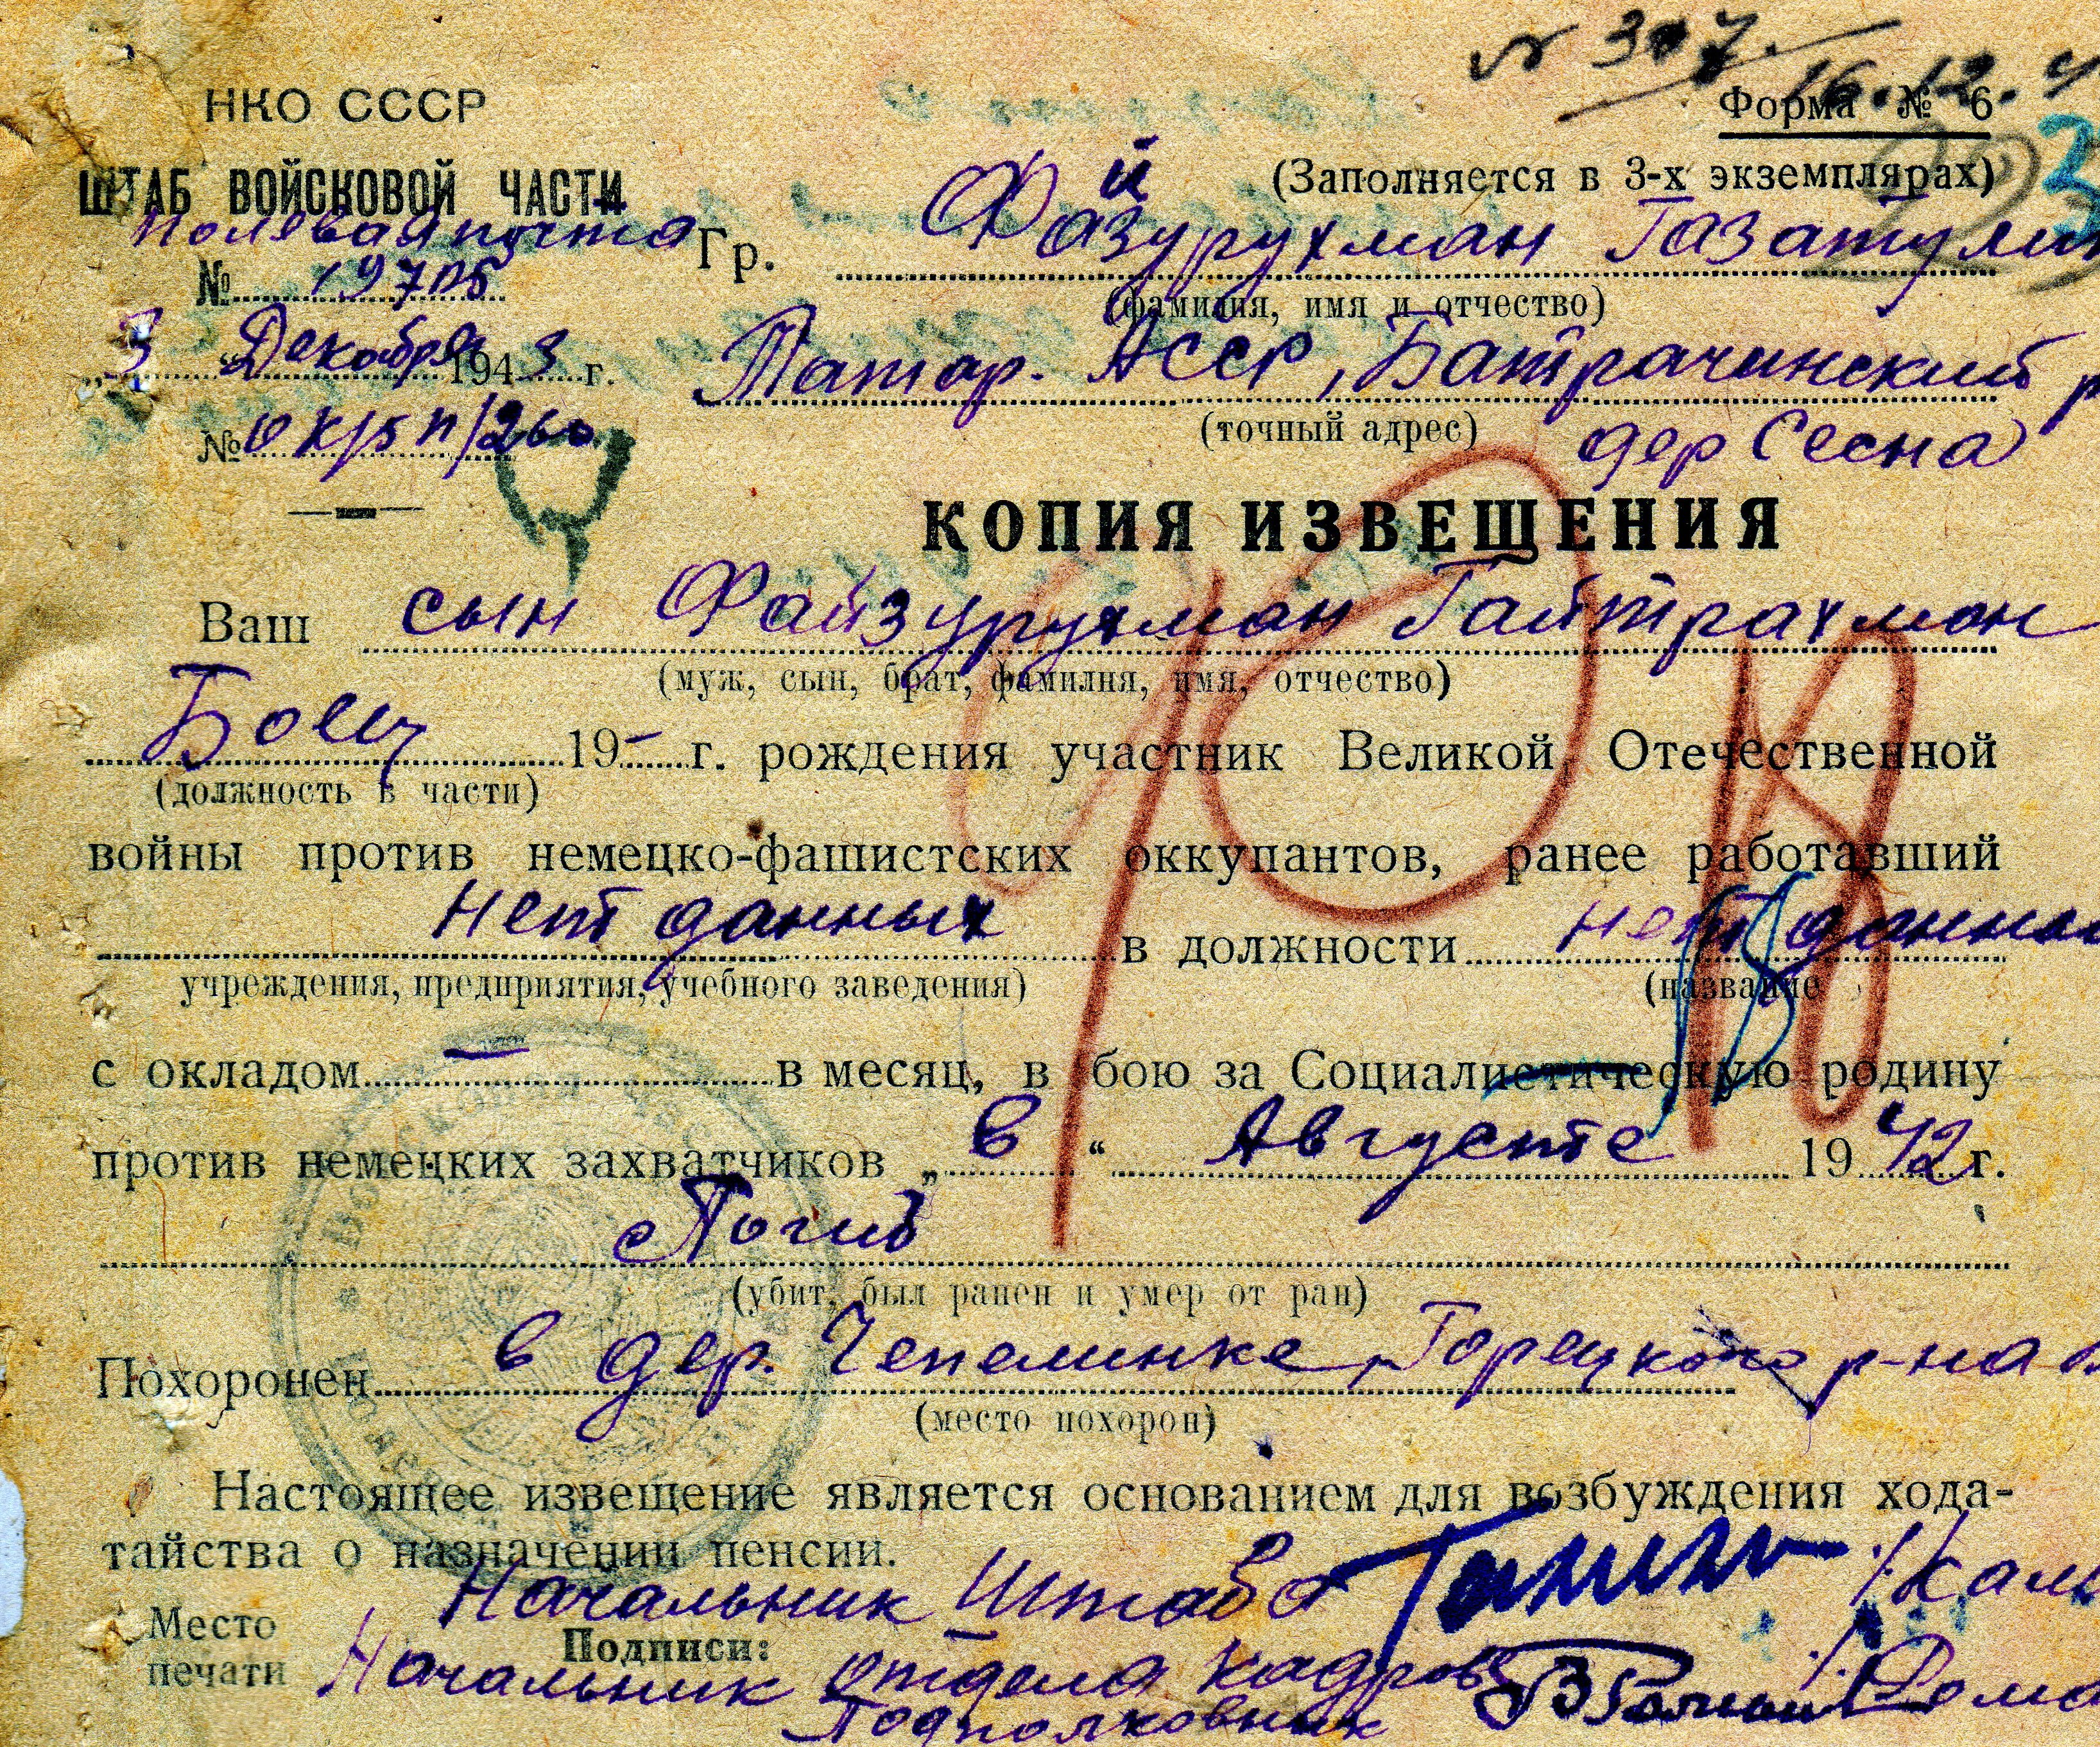 № 307.
16.12.4
НКО СССР
Форма № 6
ШТАБ ВОЙСКОВОЙ ЧАСТИ
(Заполняется в 3-х экземплярах)
Полевая почта
№ 19705
Гр. Файзурухман Газатулин
(фамилия, имя и отчество)
„3“ Декабря 1943 г.
Татар. АССР, Батрачинский р
(точный адрес) дер Сесна
КОПИЯ ИЗВЕЩЕНИЯ
Ваш сын Файзурухман Гайтрахман
(муж, сын, брат, фамилия, имя, отчество)
Боец 19-г. рождения участник Великой Отечественной
(должность в части)
войны против немецко-фашистских оккупантов, ранее работавший
Нет данных в должности нет данных
учреждения, предприятия, учебного заведения) (название
с окладом — в месяц, в бою за Социалистическую родину
против немецких захватчиков „в“ Августе 1942 г.
Погиб
(убит, был ранен и умер от ран)
Похоронен в дер. Чепелинке, Горецкого р-на
(место похорон)
Настоящее извещение является основанием для возбуждения хода-
тайства о назначении пенсии.
Начальник Штаба
Место
печати
Подписи:
Начальник отдела кадров
Подполковник